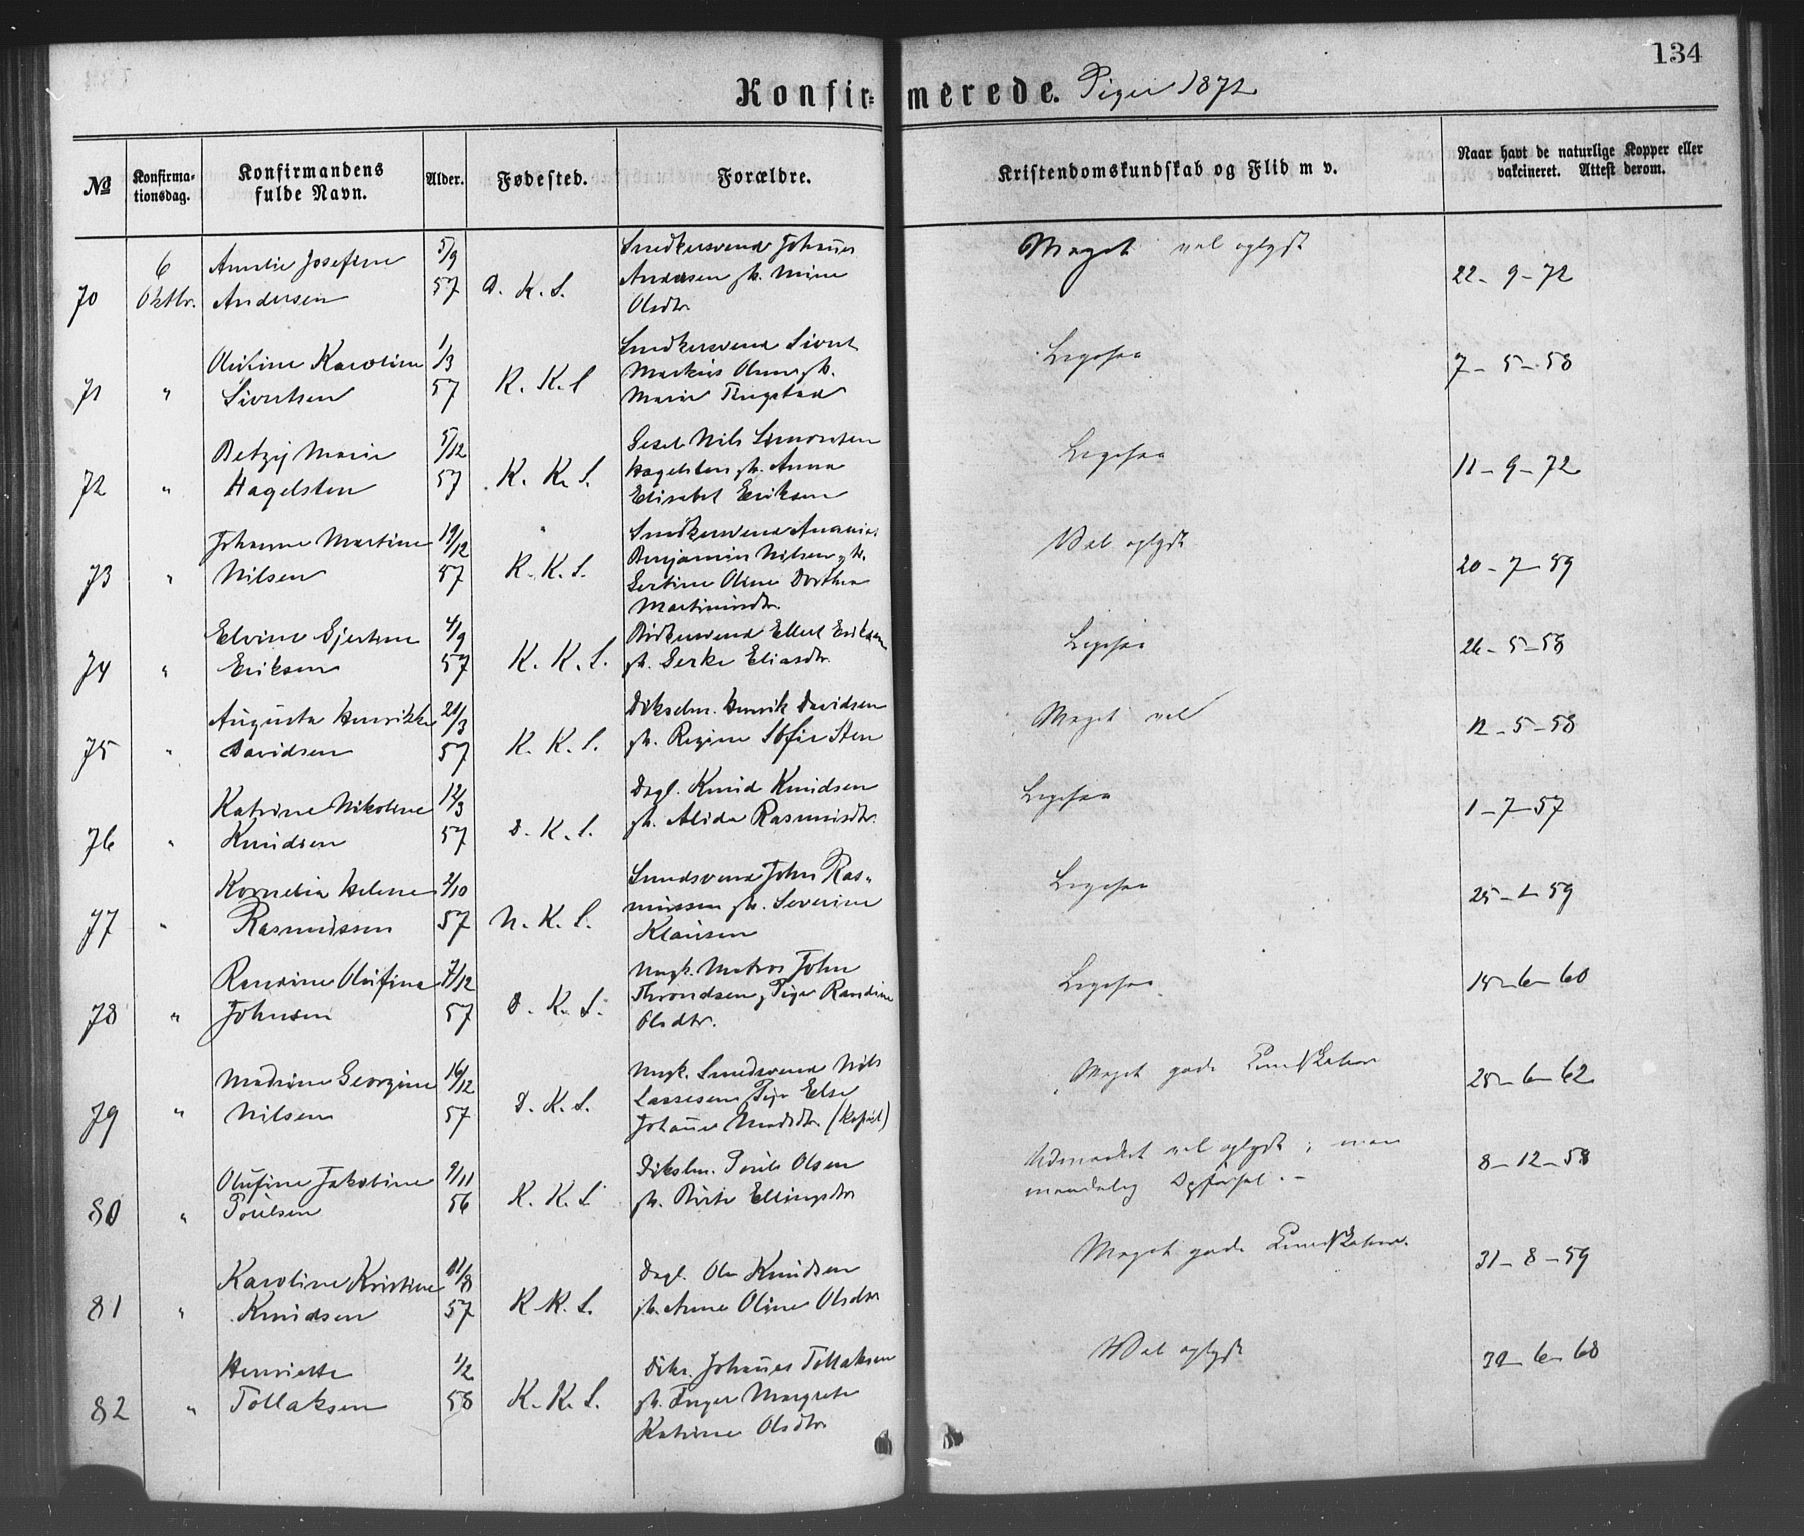 134
Konfirmerede. Piger 1872
№
Konfirmationsdag.
Konfirmandens fulde Navn.
Alder.
Fødested.
Forældre.
Kristendomskundskab og Flid m v.
Naar havt de naturlige Kopper eller vakcineret. Attest derom.
70 6 Oktbr. Amelie Josefine Andersen 5/9 57 D. K. S.
Snedkersvend Johannes
Andersen Mine
Olsdtr.
Meget vel oplyst
22-9-72
71 " Olufine Karoline Sivertsen 1/3 57 K. K. S
Snedkersvend Sivert
Markus Olsen
Marie
Ligesaa
7-5-58
72 " Betzy Marie Hagelsten 5/12 57 K. K. S.
Nils Simonsen
Hagelsten Anna
Elisabet Eriksen
Ligesaa
11-9-72
73 " Johanne Martine Nilsen 19/12 57 K. K. S.
Snedkersvend
Benjamin Nilsen
Gertine Oline Dorthea
Martinusdtr.
Vel oplyst
20-7-59
74 " Elvine Gjertine Eriksen 4/9 57 K. K. S.
Bødkersvend Ellert Eriksen
Gerke Eliasdtr.
Ligesaa
26-5-58
75 " Augusta Henrikke Davidsen 21/3 57 K. K. S.
Henrik Davidsen
Regine Sofie Sten
Meget vel
12-5-58
76 " Katrine Nikoline Knudsen 12/3 57 D. K. S.
Dagl. Knud Knudsen
Alida Rasmusdtr.
Ligesaa
1-7-57
77 " Kornelia Helene Rasmussen 2/10 57 N. K. S.
Smedsvend John Ras-
mussen Severine
Klausen
Ligesaa
25-1-59
78 " Randine Olufine Johnsen 7/12 57 D. K. S.
Ungk. Matros John
Throndsen, Pige Randine
Olsdtr.
Ligesaa
15-6-60
79 " Madrine Georgine Nilsen 16/12 57 D. K. S.
Ungk. Smedsvend Nils
Lassesen Pige Else
Johanne Madsdtr.
Meget gode Kundskaber
25-6-62
80 " Olufine Jakobine Poulsen 9/11 56 K. K. S
Poul Olsen
Birte Ellingsdtr
Udmærket vel oplyst; men
maadelig Opførsel.-
8-12-58
81 " Karoline Kristine Knudsen 11/8 57 K. K. S.
Dagl. Ole Knudsen
Anne Oline Olsdtr
Meget gode Kundskaber.
31-8-59
82 " Henriette Tollaksen 1/2 58 K. K. S.
Johannes Tollaksen
Inger Margrete
Katrine Olsdtr
Vel oplyst
30-6-60